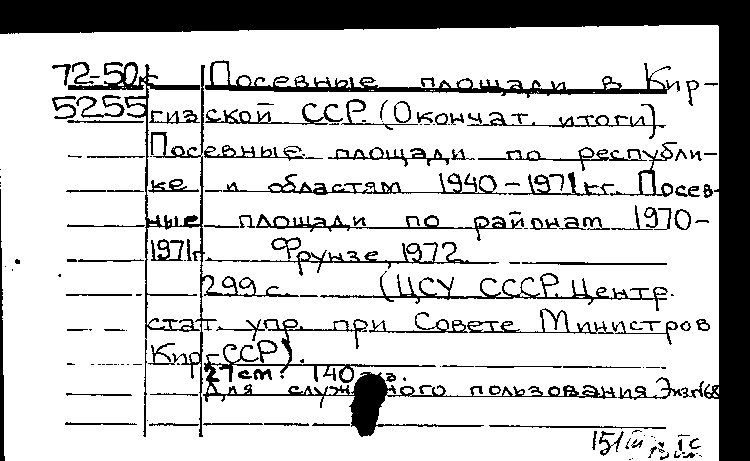 72-50к Посевные площади в Кир-
5255 гизской ССР. (Окончат. итоги).
Посевные площади по республи-
ке и областям 1940-1971гг. Посев-
ные площади по районам 1970-
1971г. Фрунзе, 1972.
299 с. (ЦСУ СССР. Центр.
стат. упр. при Совете Министров
Кирг.ССР).
27 см. 140 экз.
Для служебного пользования. Экз №68